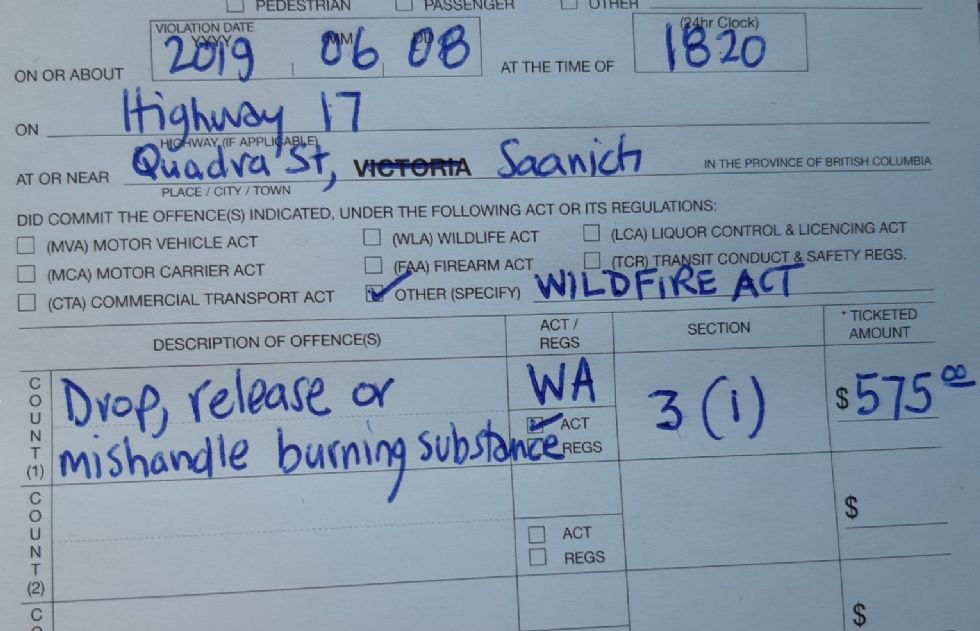 PEDESTRIAN PASSENGER OTHER
VIOLATION DATE (24hr Clock)
YYYY MM DD
ON OR ABOUT 2019 06 08 AT THE TIME OF 1820
ON Highway 17
HIGHWAY (IF APPLICABLE)
AT OR NEAR Quadra St, VICTORIA Saanich IN THE PROVINCE OF BRITISH COLUMBIA
PLACE / CITY / TOWN
DID COMMIT THE OFFENCE(S) INDICATED, UNDER THE FOLLOWING ACT OR ITS REGULATIONS:
(MVA) MOTOR VEHICLE ACT (WLA) WILDLIFE ACT (LCA) LIQUOR CONTROL & LICENCING ACT
(MCA) MOTOR CARRIER ACT (FAA) FIREARM ACT (TCR) TRANSIT CONDUCT & SAFETY REGS.
(CTA) COMMERCIAL TRANSPORT ACT OTHER (SPECIFY) WILDFIRE ACT
DESCRIPTION OF OFFENCE(S) ACT / REGS SECTION * TICKETED AMOUNT
COUNT (1) Drop, release or WA 3 (1) $ 575 00
ACT
mishandle burning substance REGS
COUNT (2) $
ACT
REGS
C $